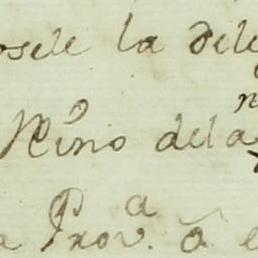 osele la dele
Nino dela
a Prov.ª â e